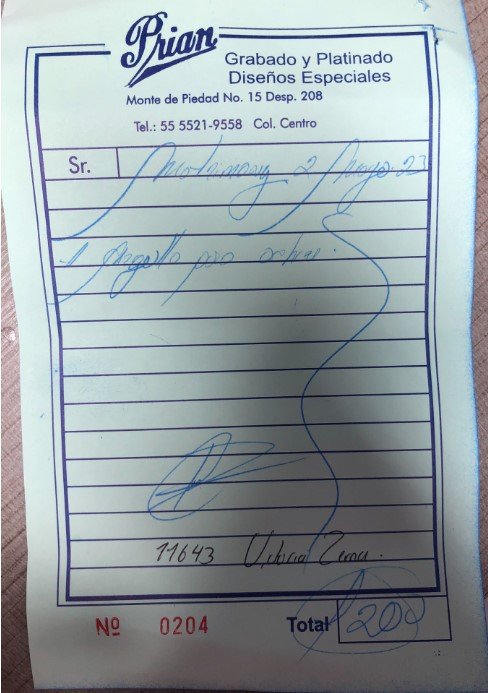 Prian
Grabado y Platinado
Diseños Especiales
Monte de Piedad No. 15 Desp. 208
Tel.: 55 5521-9558 Col. Centro
Sr. 2 Mayo 23
1 para
11643
Nº 0204 Total 200